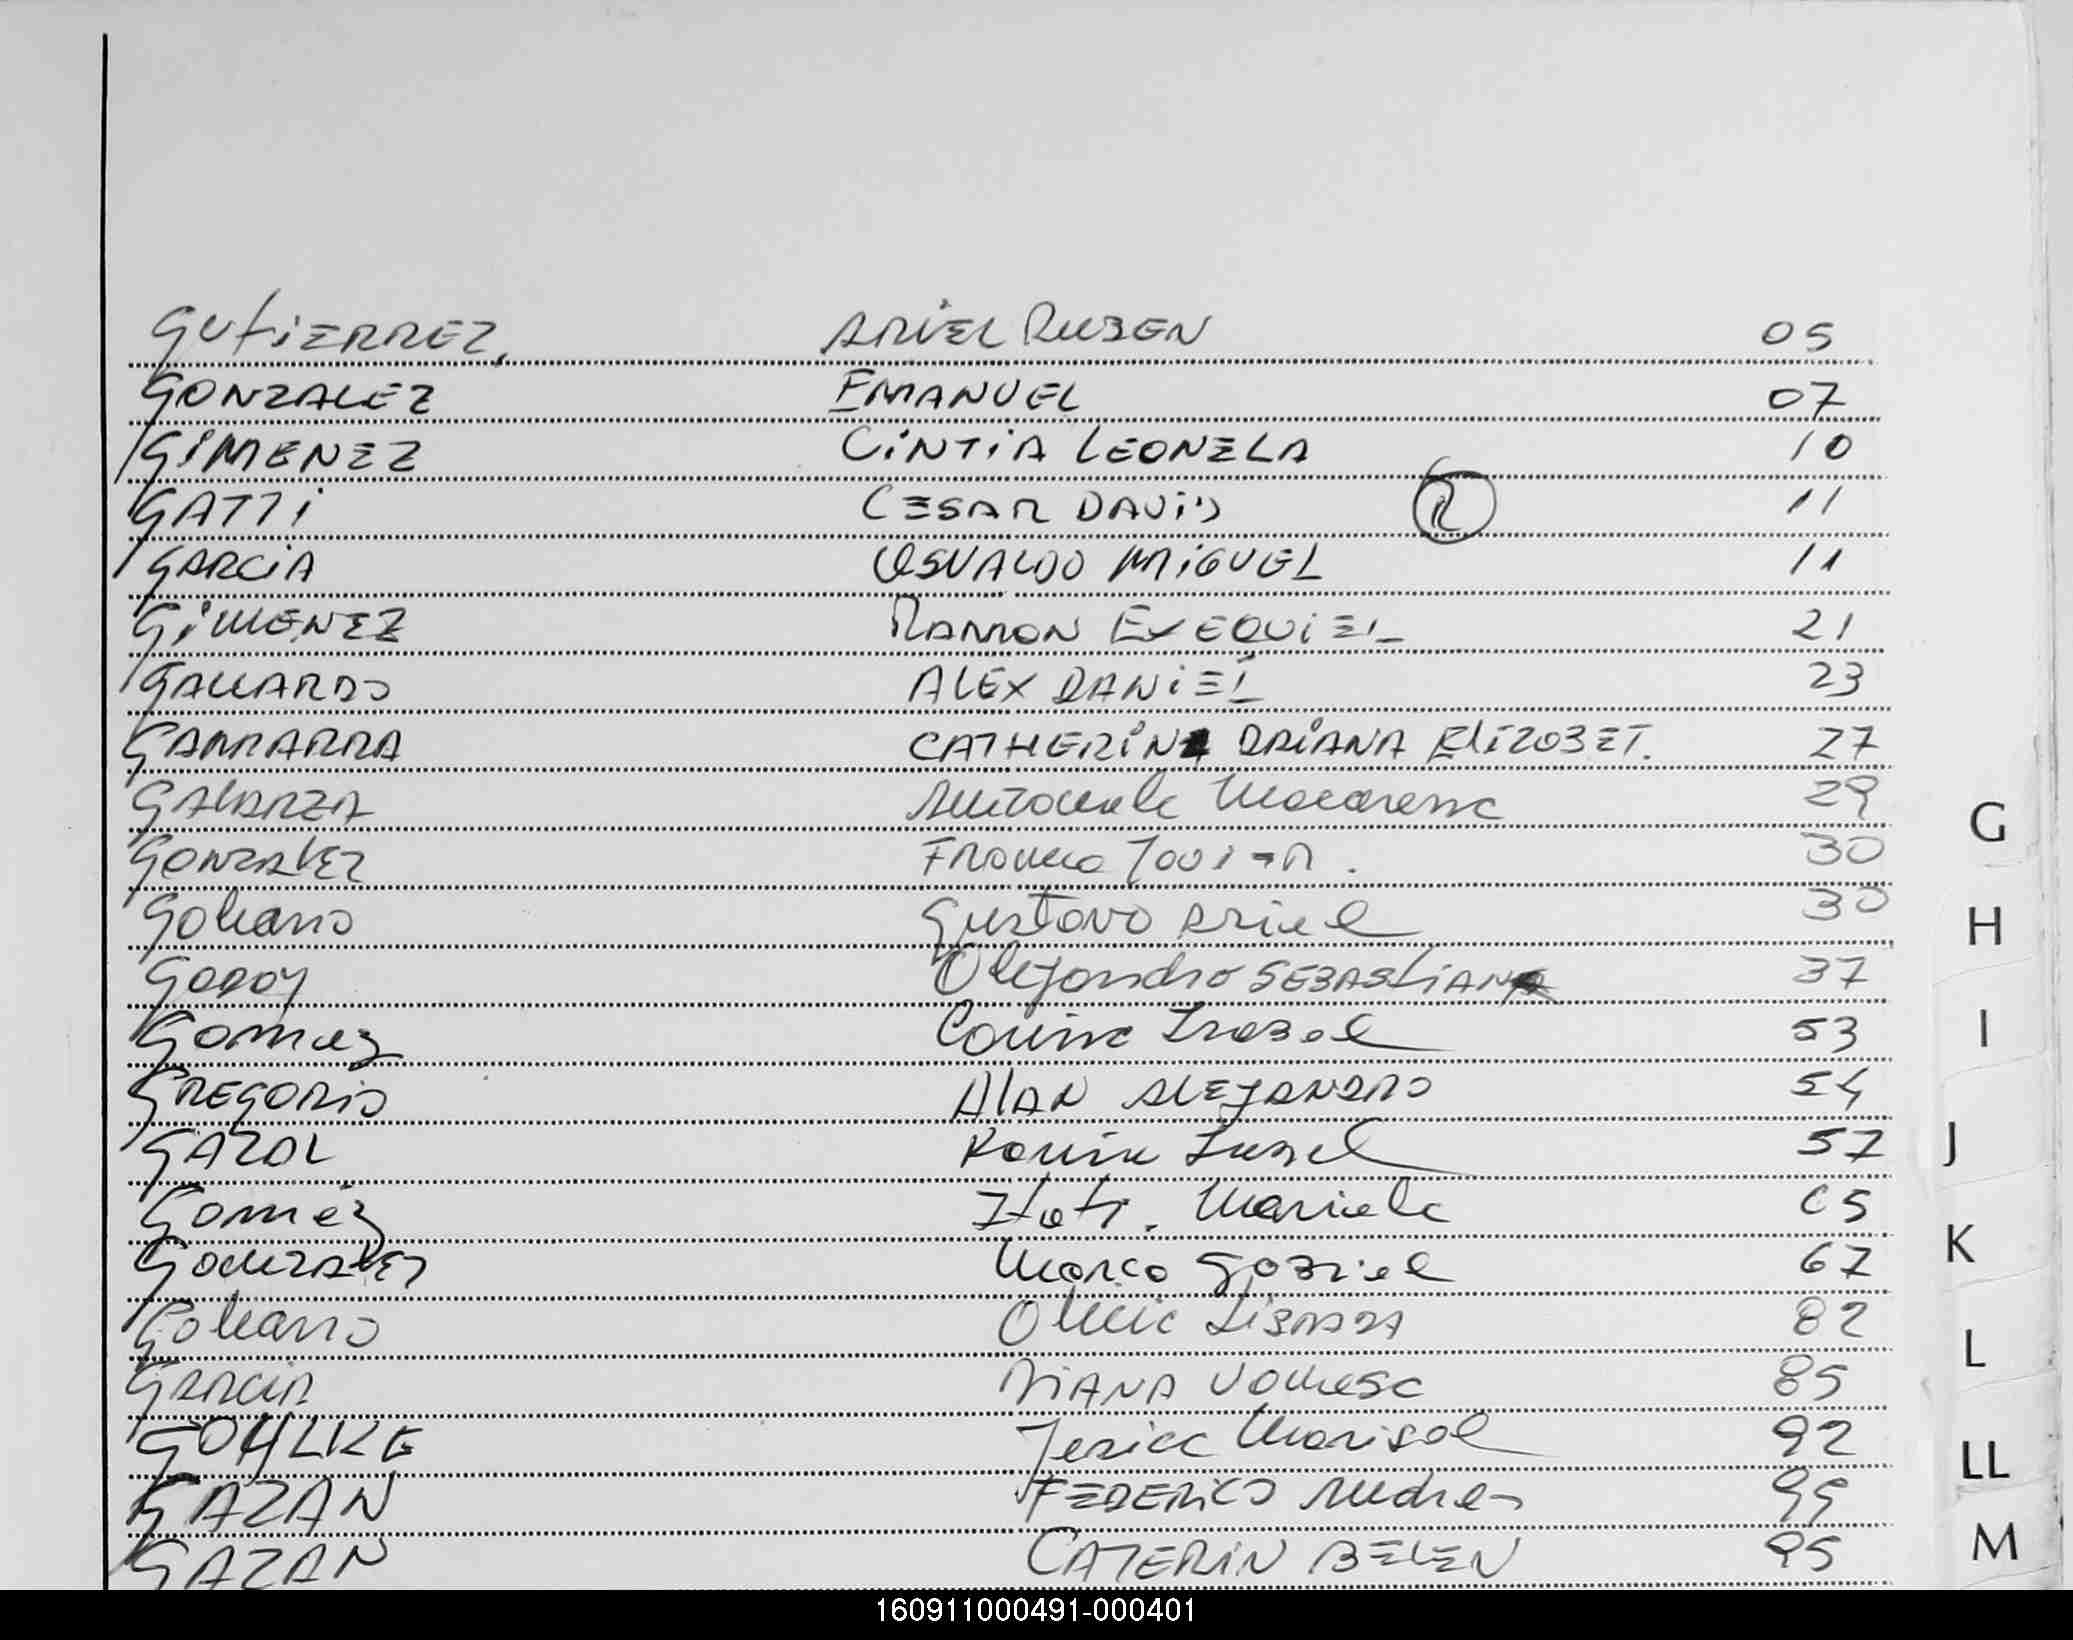 GUTIERREZ, ARIEL RUBEN 05
GONZALEZ EMANUEL 07
GIMENEZ CINTIA LEONELA 10
GATTI CESAR DAVID R 11
GARCIA OSVALDO MIGUEL 11
GIMENEZ RAMON EXEQUIEL 21
GALLARDO ALEX DANIEL 23
GAMARRA CATHERIN DAIANA ELIZABET. 27
GALARZA Macarena 29
GONZALEZ FRANCO JAVIER. 30
Galeano Gustavo Ariel 30
GODOY Alejandro SEBASTIAN 37
Gomez Isabel 53
GREGORIO ALAN ALEJANDRO 54
GAZAL Karina 57
Gomez Itati. Mariela 65
GONZALEZ Marco Gabriel 67
Galeano 82
GARCIA DIANA Vanesa 85
GOHLKE Jesica Marisol 92
GAZAN FEDERICO Andres 95
GAZAN CATERIN BELEN 95
G
H
I
J
K
L
LL
M
160911000491-000401